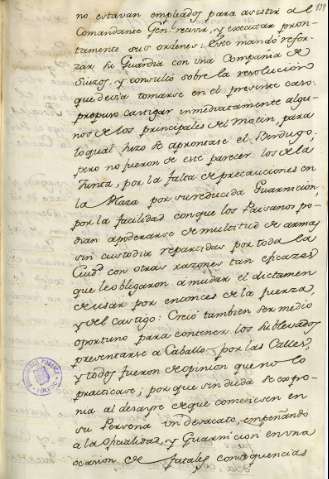 no estavan empleados para asistir al
Comandante Genl. recivir, y executar pron-
tamente sus ordenes: Este mandó refor-
zar su Guardia con una Compañia de
Suizos, y consultó sobre la resolucion
que devia tomarse en el presente caso.
propuso castigar inmediatamente algu-
nos de los principales del Motin, para
lo qual hizo se aprontase el Berdugo.
pero no fueron de este parecer los de la
Junta, por la falta de precauciones en
la Plaza por su reducida Guarnicion,
por la facilidad con que los Paisanos po-
dian apoderarse de multitud de armas
sin custodia repartidas por toda la
Ciud. con otras razones tan eficazes
que le obligaron a mudar el dictamen
de usar por entonces de la fuerza,
y del castigo: Creió tambien ser medio
oportuno para contener los sublevados
presentarse a Caballo por las Calles,
y todos fueron de opinion que no lo
practicase; por que sin duda se expo-
nia al desayre de que cometiesen en
su Persona un desacato, empeñando
a la Oficialidad, y Guarnicion en una
ocasion de fatales consequencias